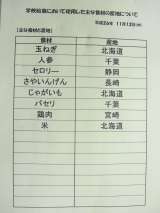 学校給食において使用した主な食材の産地について
平成26年 11月13日(木)
【主な食材の産地】
食材 産地
玉ねぎ 北海道
人参 千葉
セロリー 静岡
さやいんげん 長崎
じゃがいも 北海道
パセリ 千葉
鶏肉 宮崎
米 北海道